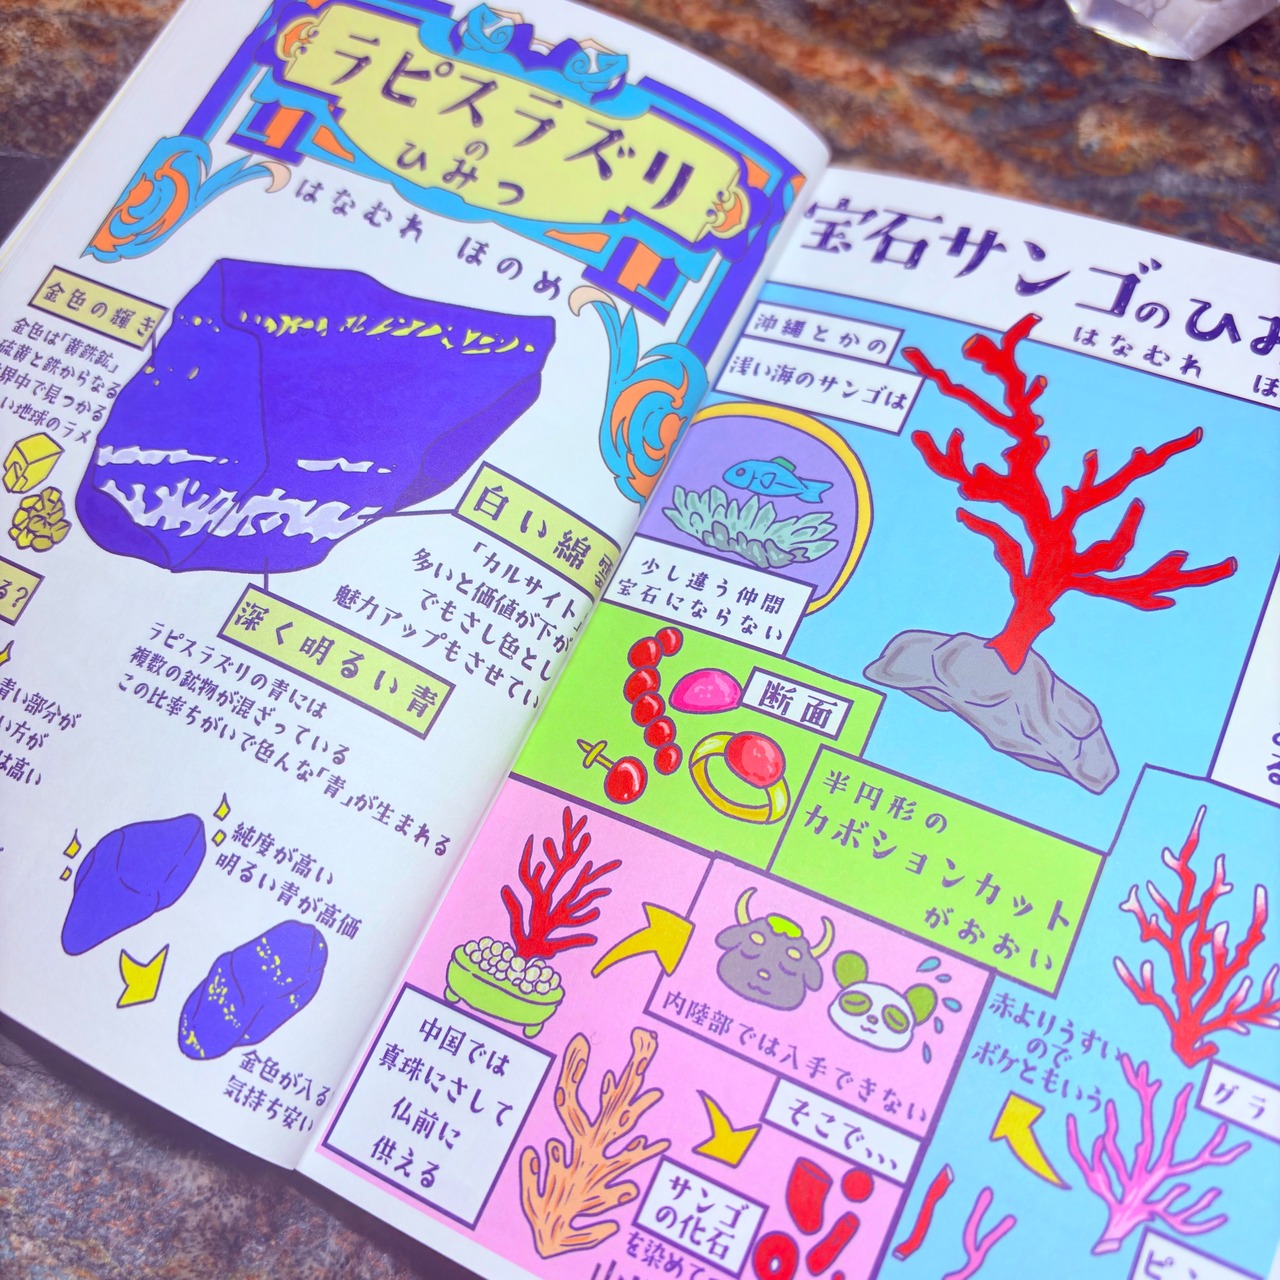 ラピスラズリ
の
ひみつ
はなむれ ほのめ
金色の輝き
金色は「黄鉄鉱」
硫黄と鉄からなる
界中で見つかる
い地球のラメ
白い綿
「カルサイト」
多いと価値が下が
でもさし色とし
魅力アップもさせてい
深く明るい青
ラピスラズリの青には
複数の鉱物が混ざっている
この比率ちがいで色んな「青」が生まれる
る?
青い部分が
い方が
は高い
純度が高い
明るい青が高価
金色が入る
気持ち安い
宝石サンゴのひ
はなむれ ほ
沖縄とかの
浅い海のサンゴは
少し違う仲間
宝石にならない
断面
半円形の
カボションカット
がおおい
中国では
真珠にさして
仏前に
供える
内陸部では入手できない
そこで、、、
サンゴ
の化石
を染めて
赤よりうすい
ので
ボケともいう
グラ
ピン